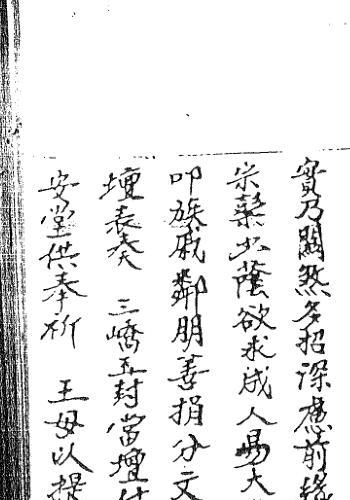 實乃關煞多招深慮前緣
宗藥少蔭欲求成人易大
叩族戚鄰朋善捐分文
壇表奏 三嶠五封當壇付
安堂供奉祈 王母以提